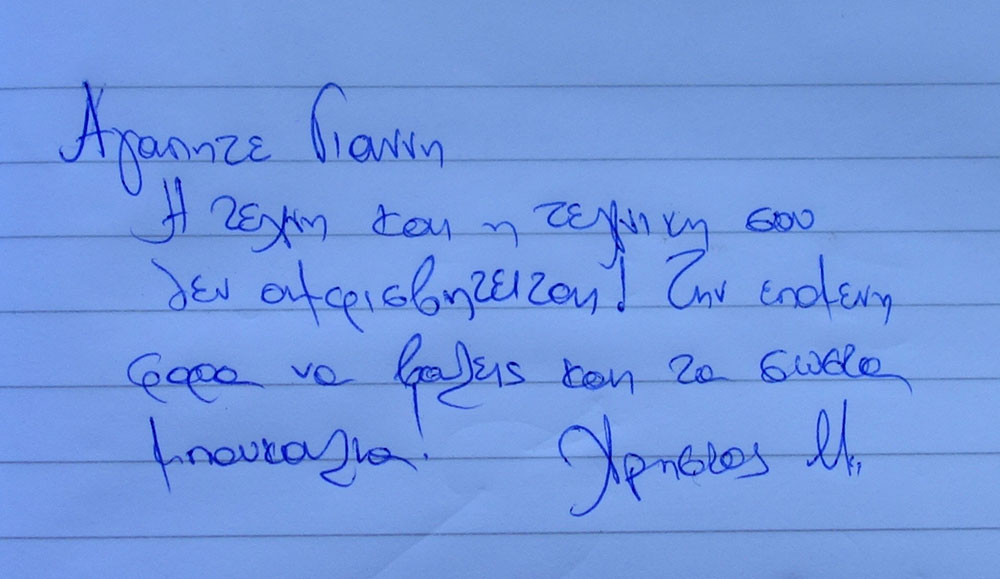 Αγαπητε Γιαννη
Η τεχνη και η τεχνικη σου
δεν αμφισβητειται! Την επομενη
φορα να βαλεις και τα σωστα
μπουκαλια! Χρηστος Μ.